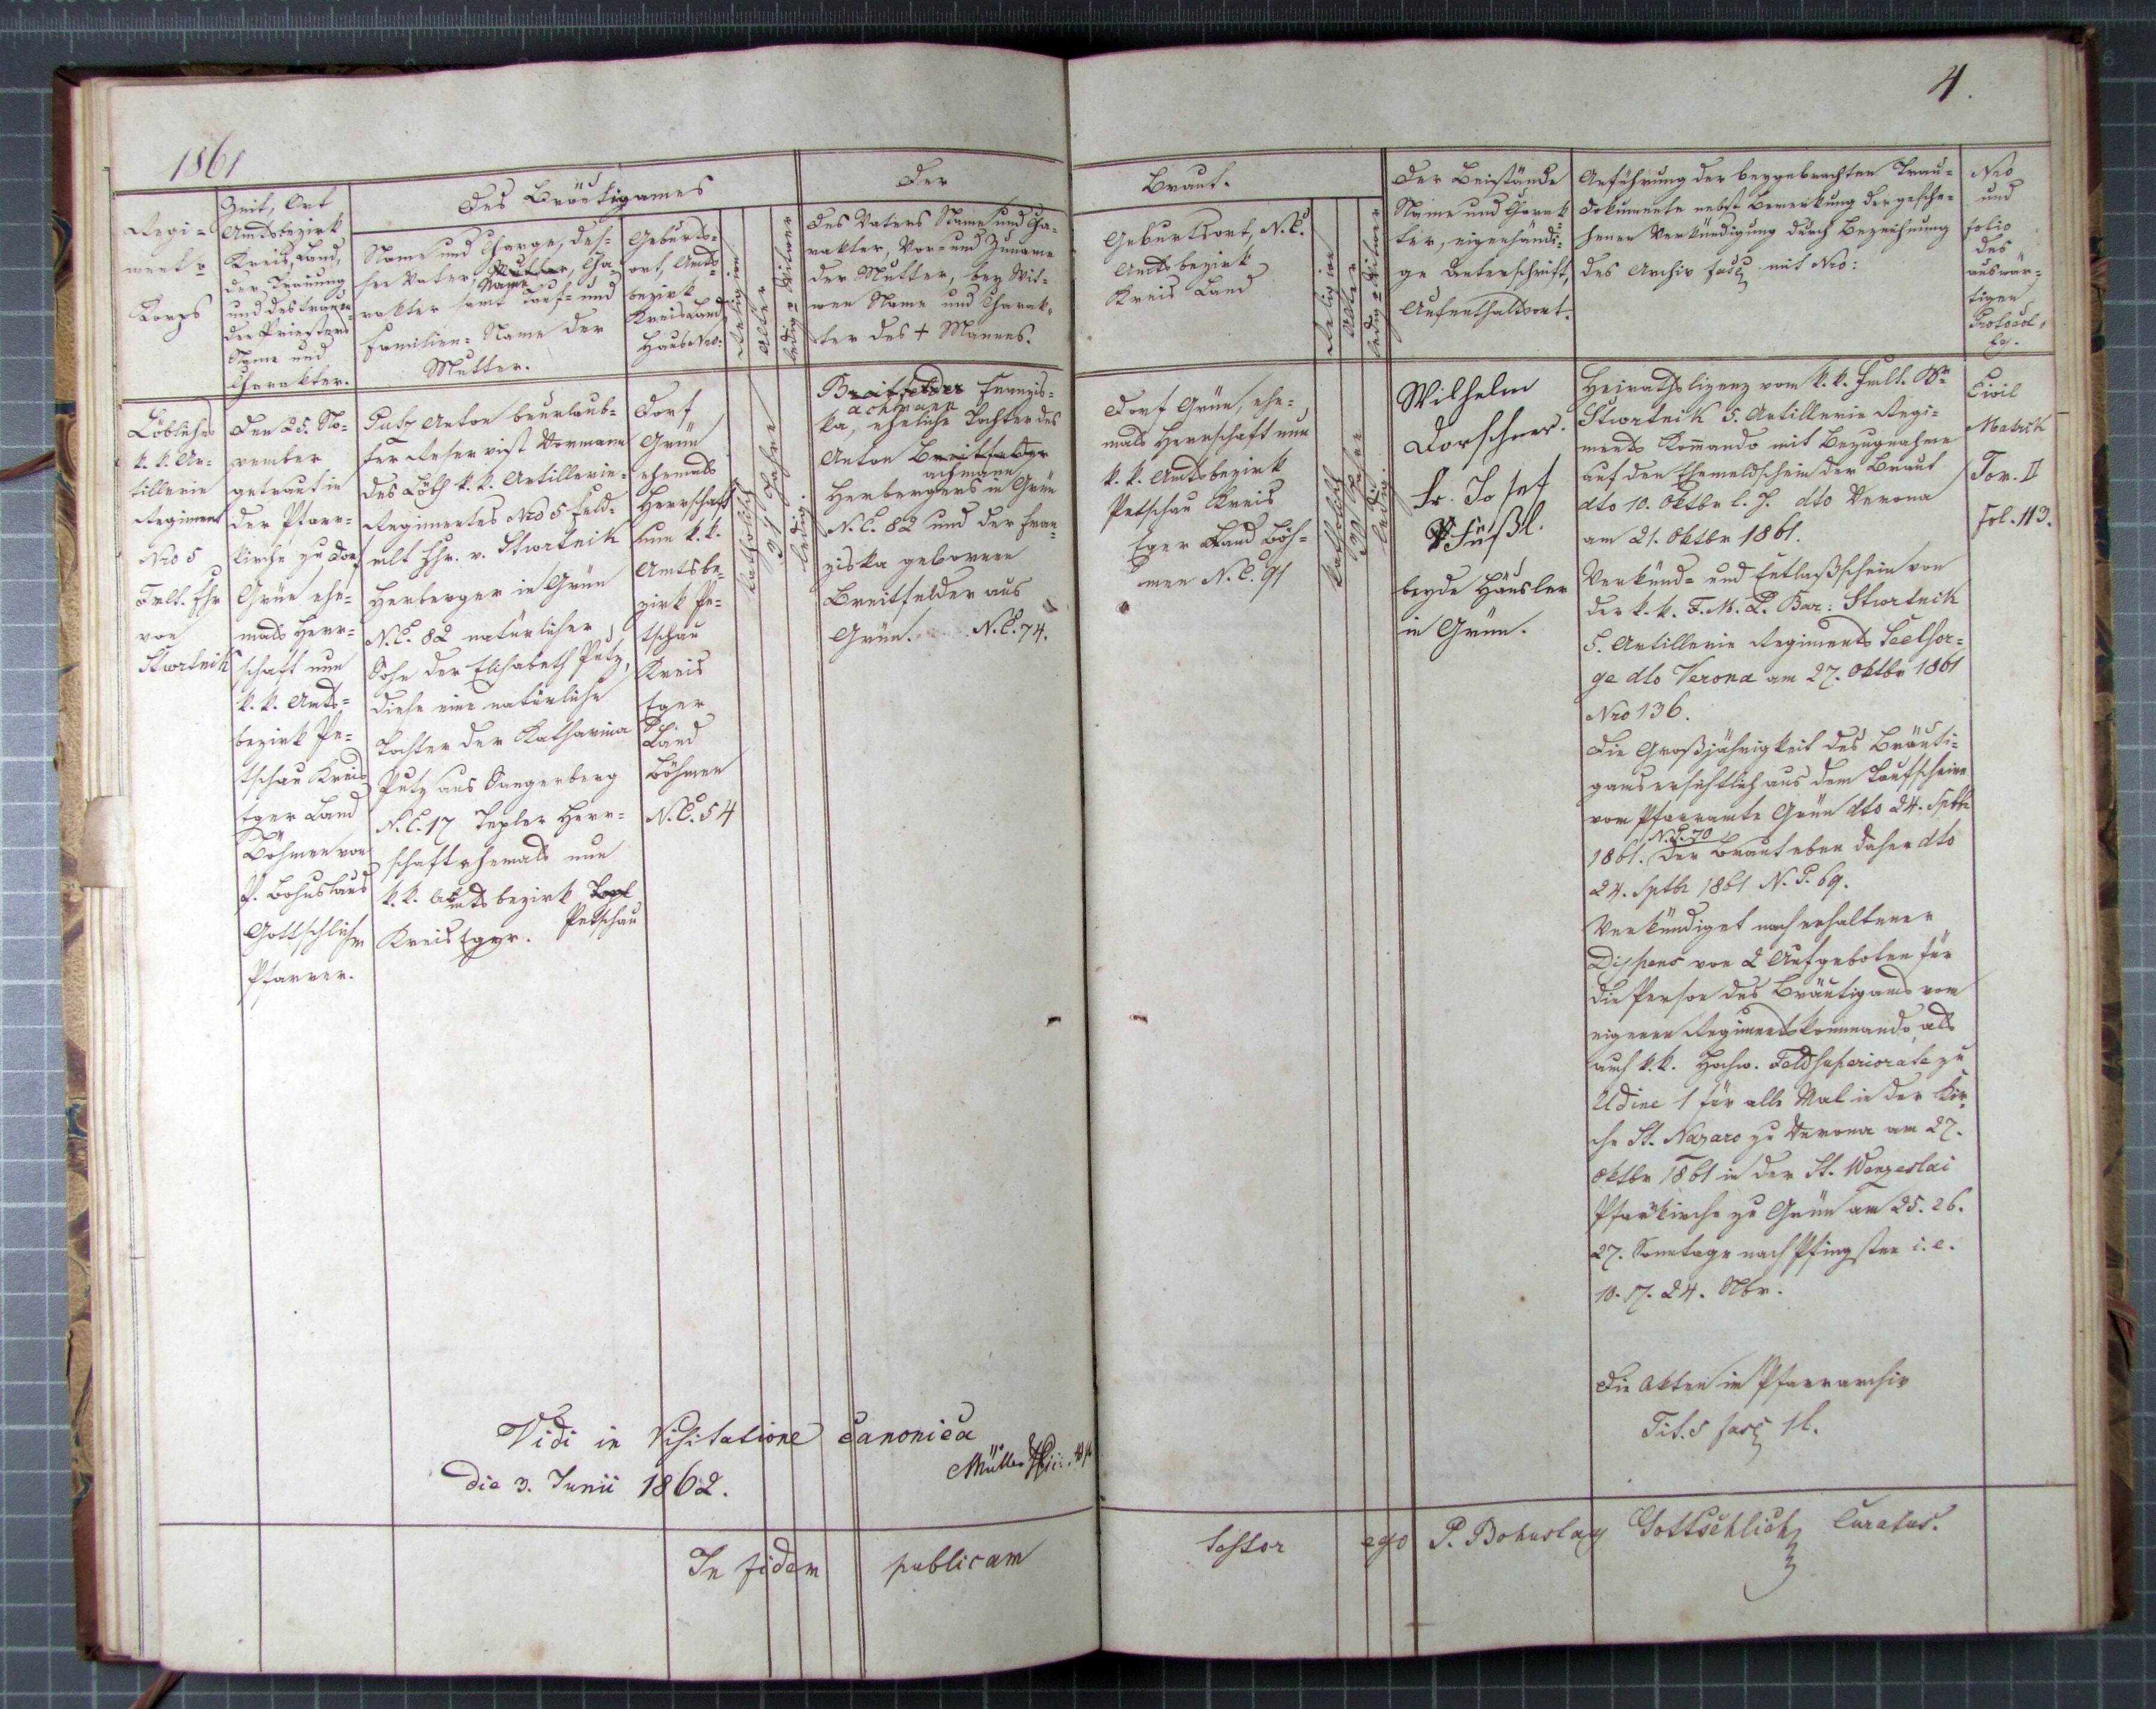 4.
1861
Regi=
ments=
Korps
Zeit, Ort
Amtsbezirk
Kreis, Land,
der Trauung
und des trauen=
den Priesters
Name und
Charakter.
Des Bräutigames
Name und Charge, des=
sen Vater, Mutter, Cha=
Name
rakter samt Tauf= und
Familien=Name der
Mutter.
Geburts=
ort, Amts=
bezirk
Kreis Land
Haus Nro:
Religion
Alter
ledig=Witwer
Der
Des Vaters Name und Cha=
rakter, Vor= und Zuname
der Mutter, bey Wit=
wen Name und Charak=
ter des + Mannes.
Braut.
Geburtsort, N.C.
Amtsbezirk
Kreis Land
Religion
Alter
ledig=Witwe
Der Beistände
Name und Charak=
ter, eigenhändi=
ge Unterschrift,
Aufenthaltsort.
Anführung der beygebrachten Trau=
dokumente nebst Bemerkung der gesche=
henen Verkündigung durch Bezeichnung
des Archiv fasc. mit Nro:
Nro
und
folio
des
auswär=
tigen
Protocol=
les.
Löbliches
k. k. Ar=
tillerie
Regiment
Nro 5
Fmlt. Fhr
von
Stwrtnik
Den 25. No=
vember
getraut in
der Pfarr=
kirche zu Dorf
Grün ehe=
mals Herr=
schaft nun
k. k. Amts=
bezirk Pe=
tschau Kreis
Eger Land
Böhmen von
P. Bohuslaus
Gottschlich
Pfarrer.
Putz Anton beurlaub=
ter Reservist Vormann
des Löbl. k. k. Artillerie=
Regimentes Nro 5 Feld=
mlt Fhr. v. Stwrtnik
Herberger in Grün
N.C. 82 natürlicher
Sohn der Elisabeth Putz,
diese eine natürliche
Tochter der Katharina
Putz aus Sangerberg
N.C. 17 Tepler Herr=
schaft ehemals nun
k. k. Amtsbezirk Tepl
Petschau
Kreis Eger.
Dorf
Grün
ehemals
Herrschaft
nun k. k.
Amtsbe=
zirk Pe=
tschau
Kreis
Eger
Land
Böhmen
N.C. 54
katholisch
31 Jahre
ledig.
Breitfelder Franzis=
achmann
ka, eheliche Tochter des
Anton Breitfelder
achmann
Herbergers in Grün
N.C. 82 und der Fran=
ziska geborenen
Breitfelder aus
Grün. N.C. 74.
Dorf Grün, ehe=
mals Herrschaft nun
k. k. Amtsbezirk
Petschau Kreis
Eger Land Böh=
men N.C. 91
katholisch
ledig.
Wilhelm
Dorschner.
Fr. Josef
Füßl.
beyde Häusler
in Grün.
Heirathslizenz vom k. k. Fmlt. Br
Stwrtnik 5. Artillerie Regi=
ments Kommando mit Bezugnahme
auf den Ehemeldschein der Braut
dto 10. Oktbr l. J. dto Verona
am 21. Oktbr 1861.
Verkünd= und Entlaßschein von
der k. k. F. M. L. Bar: Stwrtnik
5. Artillerie Regiments Seelsor=
ge dto Verona am 27. Oktbr 1861
Nro 136.
Die Großjährigkeit des Bräuti=
gams ersichtlich aus dem Taufscheine
vom Pfarramte Grün dto 24. Sptbr
N.P. 70
1861. Der Braut eben daher dto
24. Sptbr 1861 N.P. 69.
Verkündiget nach erhaltener
Dispens von 2 Aufgeboten für
die Person des Bräutigams vom
eigenen Regimentskommando, als
auch k. k. Hochw. Feldsuperiorate zu
Udine 1 für alle Mal in der Kir=
che St. Nazaro zu Verona am 27.
Oktbr 1861 in der St. Wenzeslai
Pfarrkirche zu Grün am 25. 26.
27. Sonntage nach Pfingsten i. e.
10. 17. 24. Nbr.
Die Akten im Pfarrarchiv
Tit. 5 fasc 1 l.
Civil
Matrik
Tom. II
fol. 113.
Vidi in Visitatione canonica
die 3. Junii 1862.
Müller
In fidem publicam
testor ego P. Bohuslaus Gottschlich Curatus.